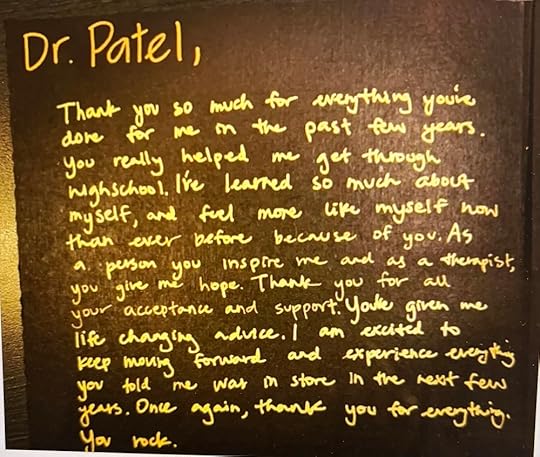 Dr. Patel,
Thank you so much for everything you've
done for me in the past few years.
You really helped me get through
highschool. I've learned so much about
myself, and feel more like myself now
than ever before because of you. As
a person you inspire me and as a therapist,
you give me hope. Thank you for all
your acceptance and support. You've given me
life changing advice. I am excited to
keep moving forward and experience everything
you told me was in store in the next few
years. Once again, thank you for everything.
You rock.